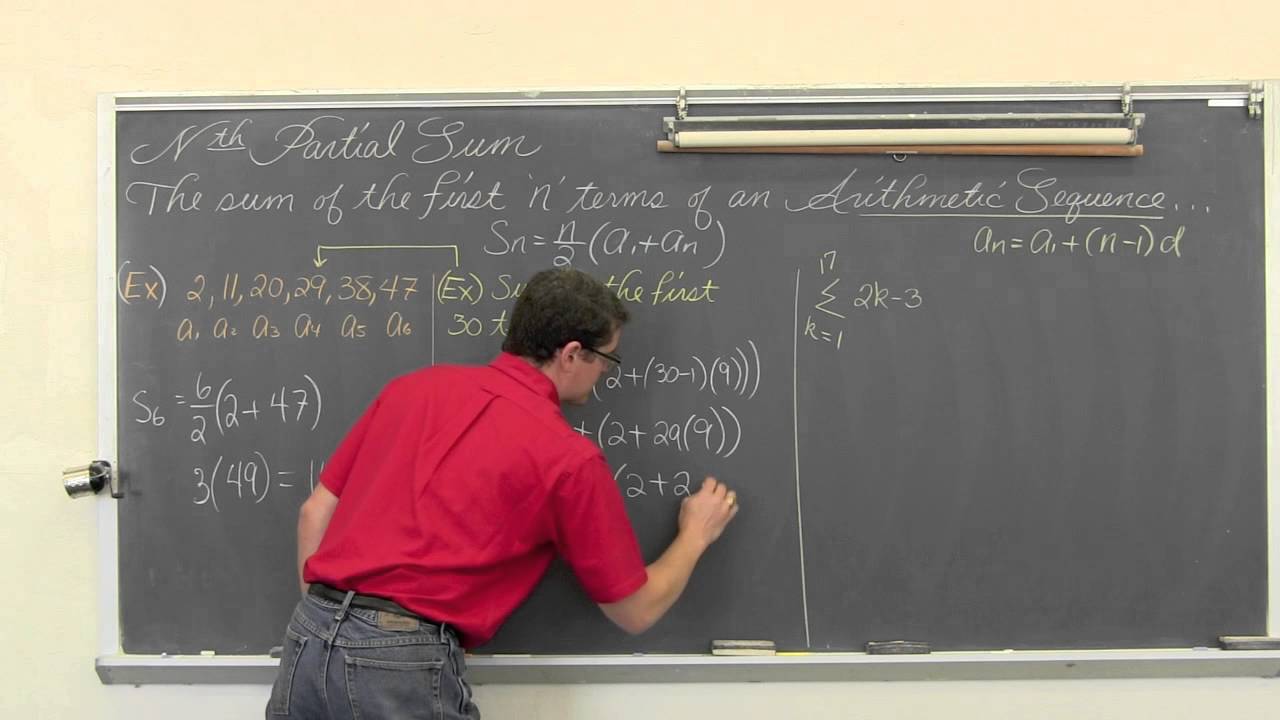 Nth Partial Sum
The sum of the first 'n' terms of an Arithmetic Sequence...
Sn = n/2 (a1 + an)
an = a1 + (n-1) d
(Ex) 2, 11, 20, 29, 38, 47
a1 a2 a3 a4 a5 a6
S6 = 6/2 (2 + 47)
3(49) =
(Ex) the first
30
(2 + (30-1)(9)))
+ (2 + 29(9))
(2 + 2
17
Σ 2k-3
k=1